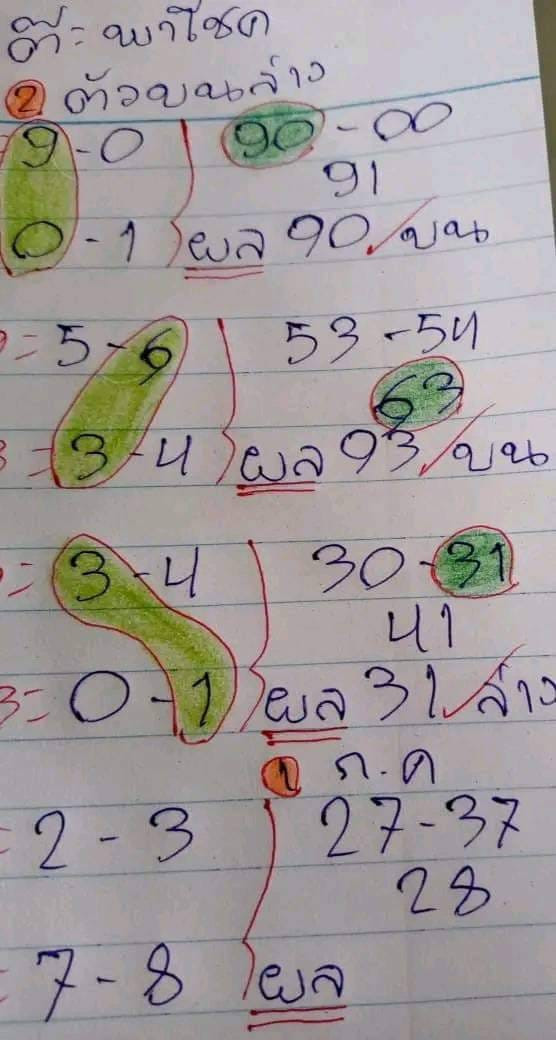 ต๊ะ พาโชค
2 ตัวบนล่าง
9-0 90-00
91
0-1 ผล 90 บน
= 5-6 53-54
63
= 3-4 ผล 93 บน
= 3-4 30-31
41
3= 0-1 ผล 31 ล่าง
1 ก.ค
= 2-3 27-37
28
= 7-8 ผล